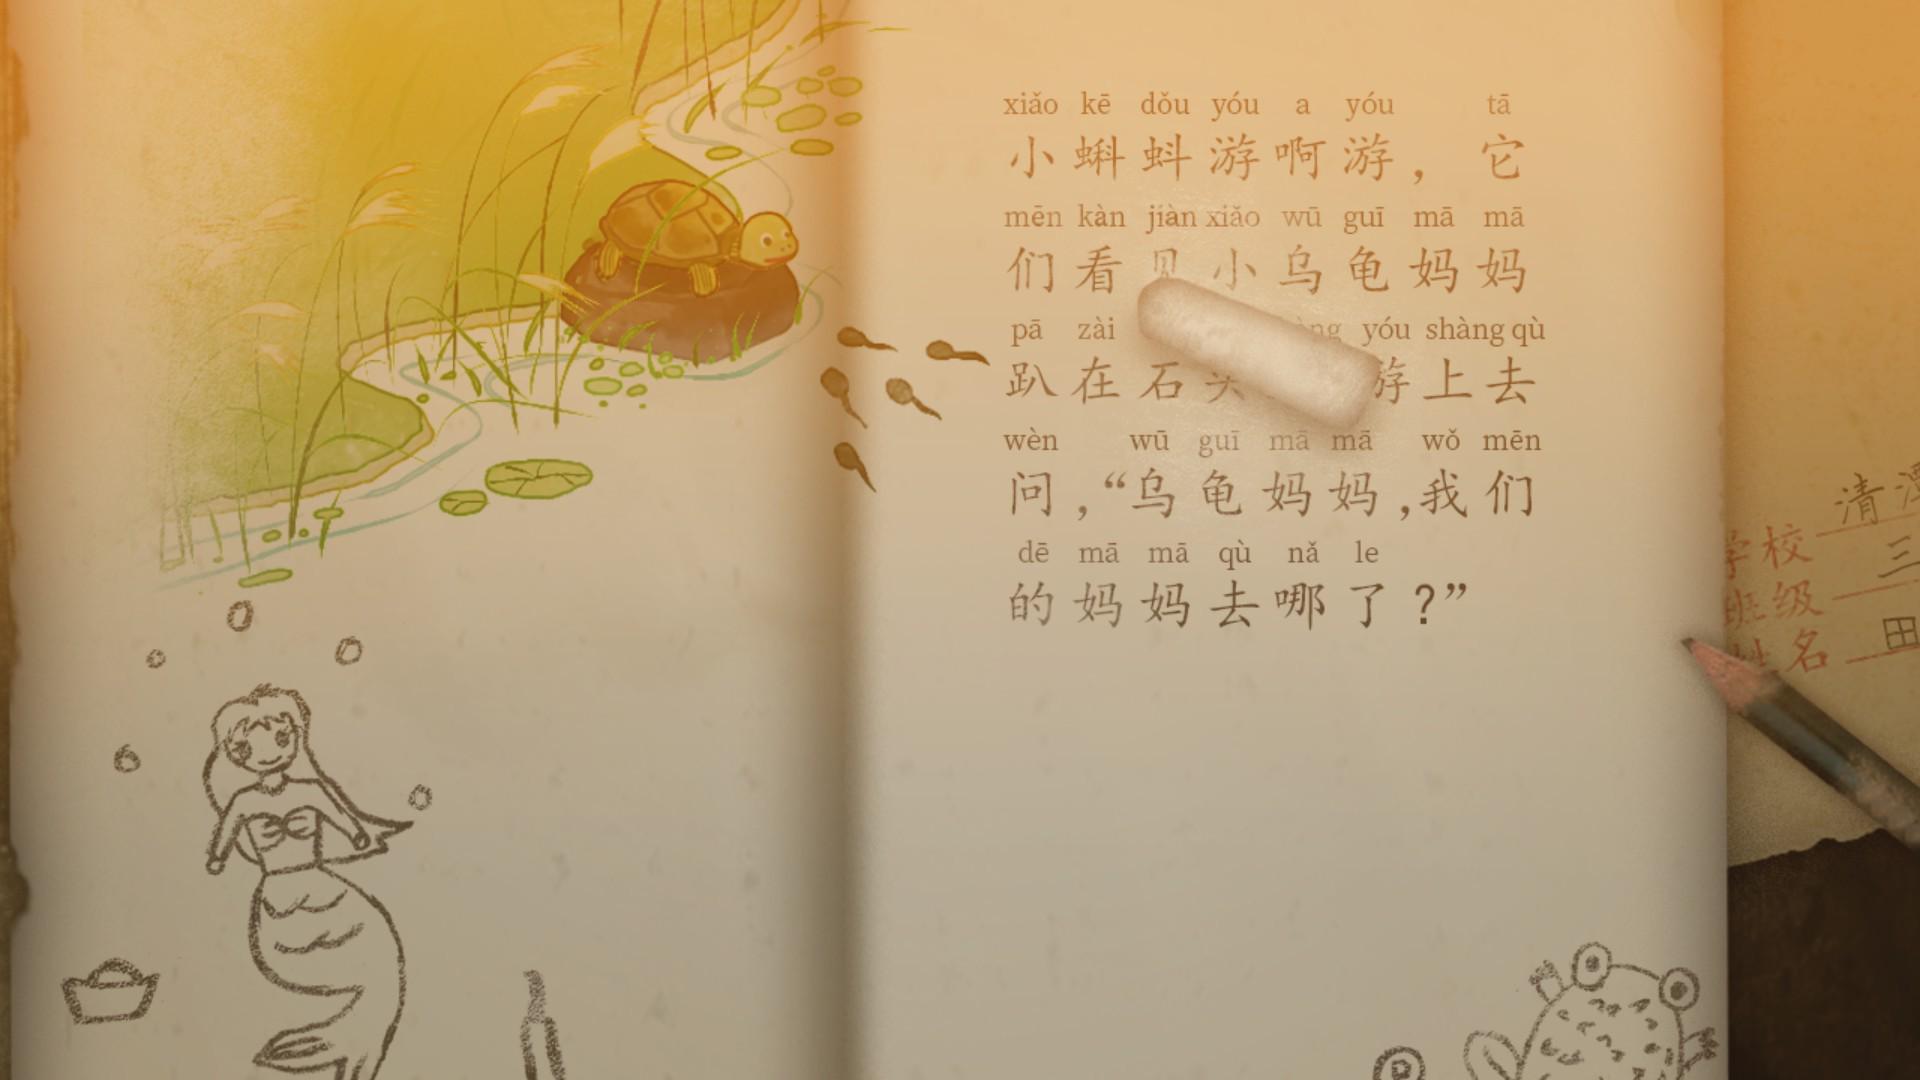 xiǎo kē dǒu yóu a yóu tā
小蝌蚪游啊游，它
mēn kàn jiàn xiǎo wū guī mā mā
们看见小乌龟妈妈
pā zài yóu shàng qù
趴在石头 游上去
wèn wū guī mā mā wǒ mēn
问，“乌龟妈妈，我们
dē mā mā qù nǎ le
的妈妈去哪了？”
清潭
学校
三
班级
田
姓名